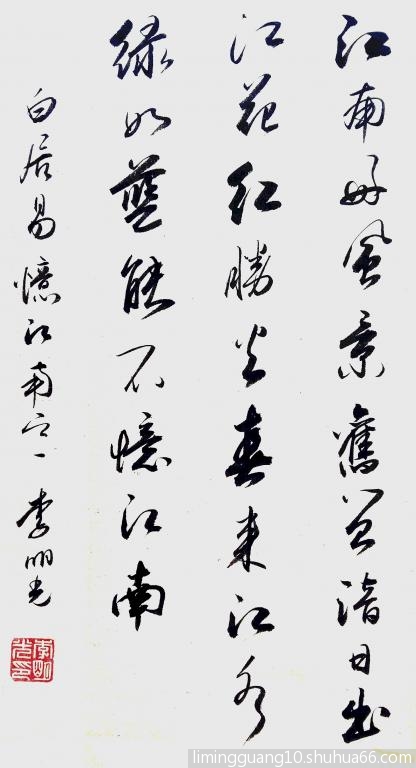 江南好風景舊曾諳日出
江花紅勝火春來江水
綠如藍能不憶江南
白居易憶江南之一 李明光
李明光印
limingguang10.shuhua66.com